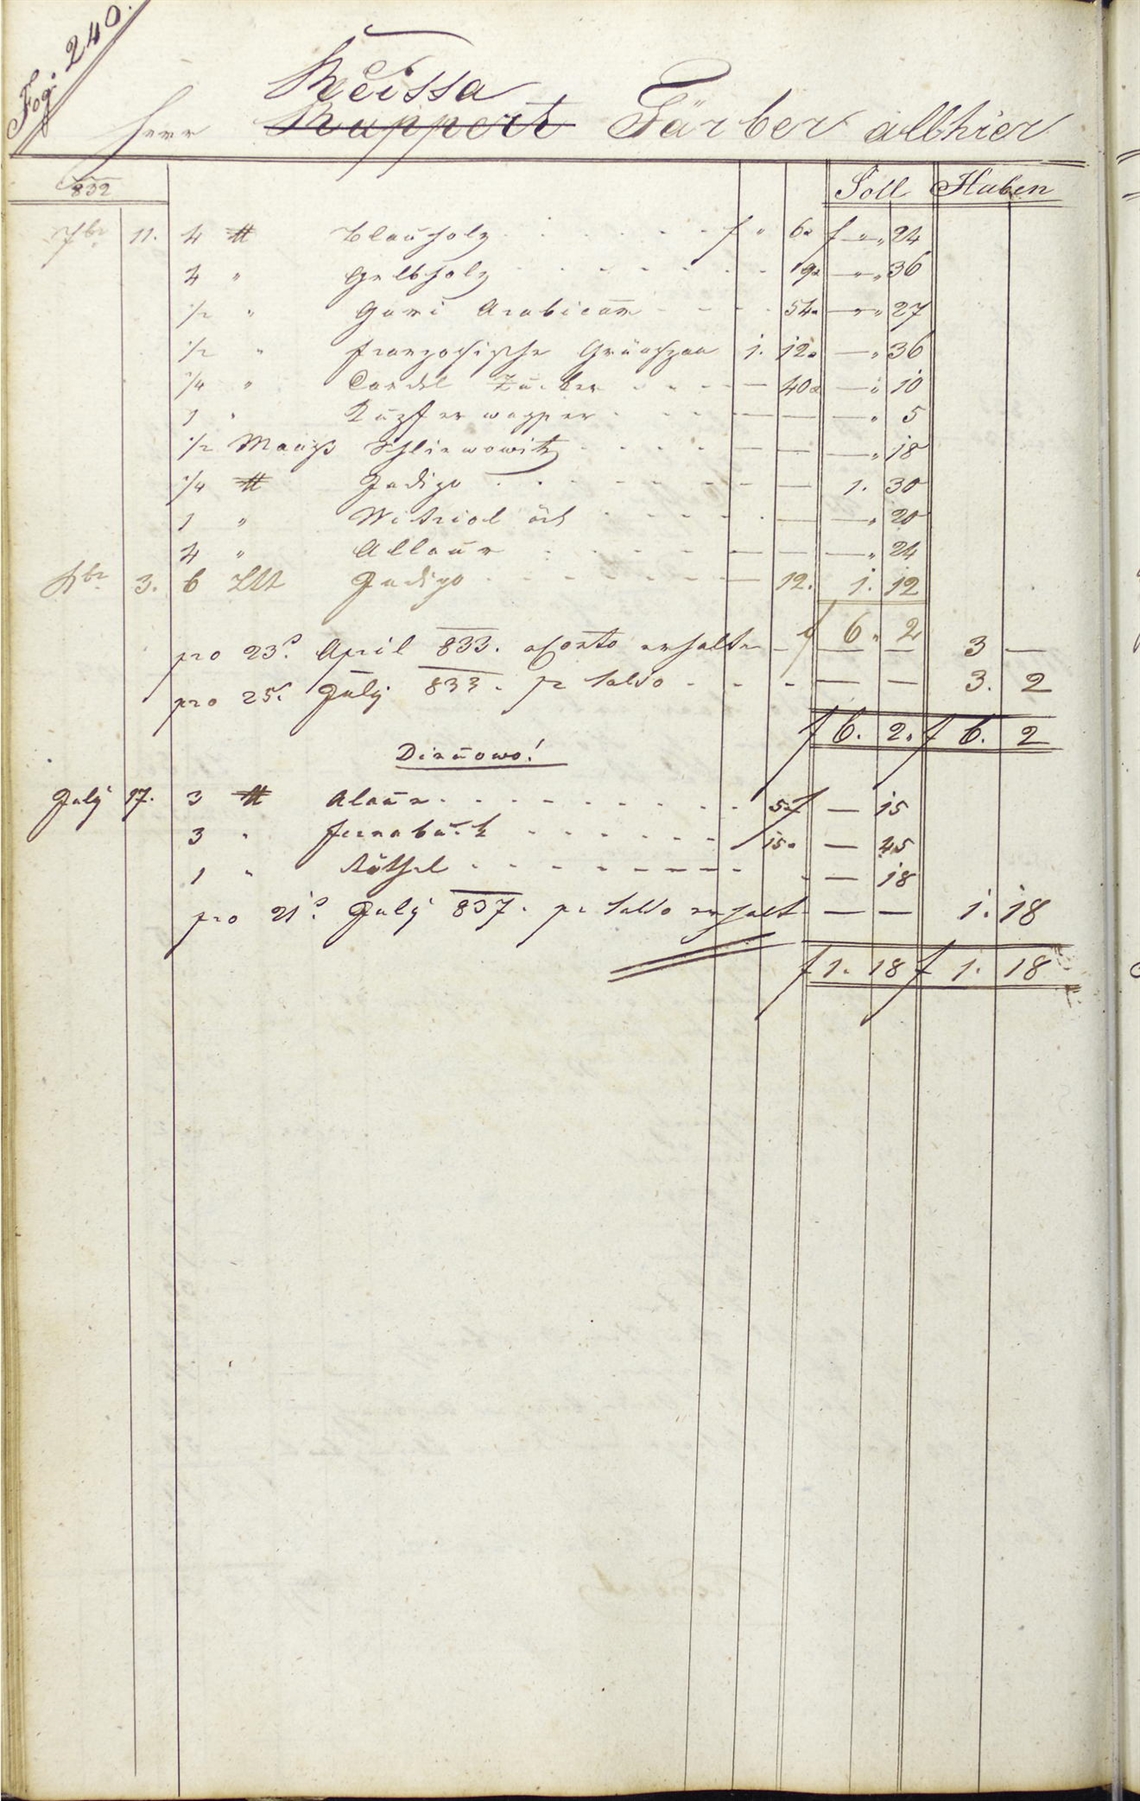 Fog. 240.
Reissa
Herr Ruppert Färber allhier
832
Soll Haben
7br 11. 4 ℔ Blauholz f " 6 f — " 24
4 " Gelbholz 9 — " 36
1/2 " Gumi Arabicum 54 — " 27
1/2 " französische Grünspan 1. 12 — " 36
1/4 " Candel Zucker — 40 — " 10
1 " Kupferwasser — — — " 5
1/2 Maaß Schliwowitz — — — " 18
1/4 ℔ Indigo — — 1. 30
1 " Witriol öhl — — " 20
4 " Allaun — — — " 24
3. 6 Lth Indigo — 12. 1. 12
f 6 " 2
pro 23. April 833. aConto erhalten — — — 3 —
pro 25. July 833. pr Saldo — — 3. 2
f 6. 2. f 6. 2
July 17. 3 ℔ Alaun 5 f — 15
3 " 15 — 45
1 " Röthel — 18
pro 21. July 837. pr Saldo erhalt — — 1. 18
f 1. 18 f 1. 18